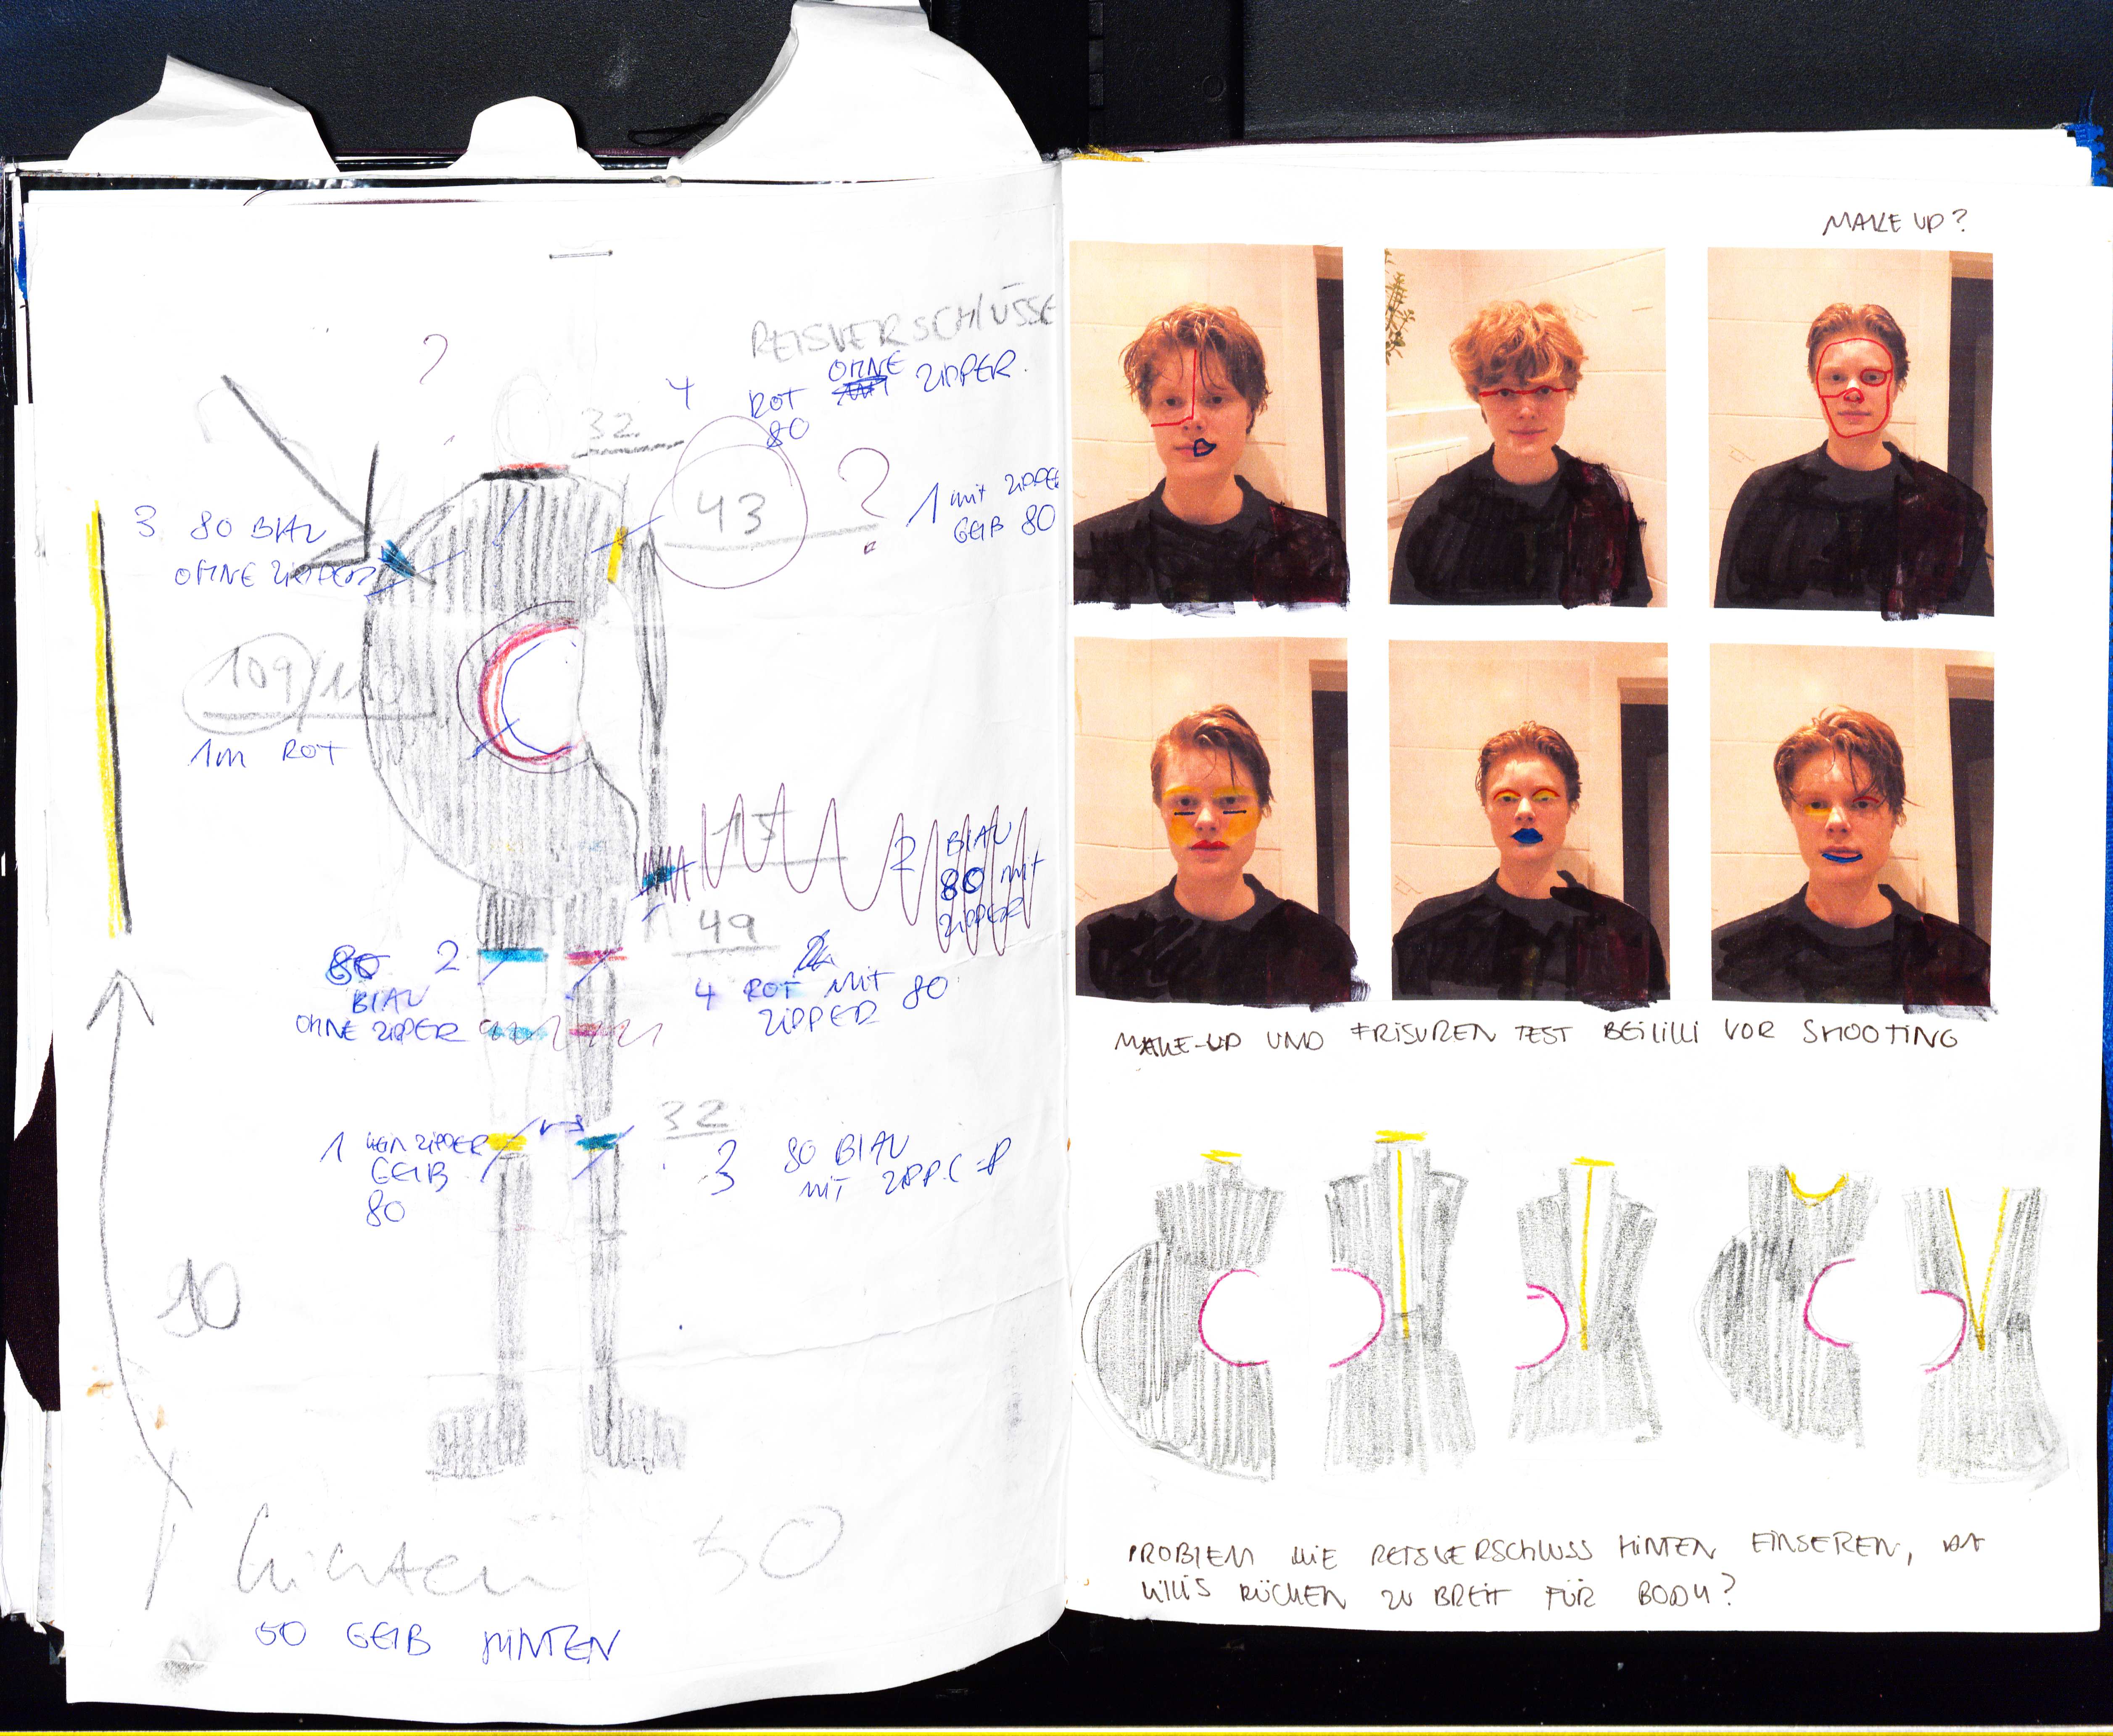 ?
REISVERSCHLÜSSE
4 ROT OHNE ZIPPER.
80
32
43 ?
1 mit ZIPPE
GELB 80
3 80 BLAU
OHNE ZIPPER
109/110
1m ROT
15
2 BLAU
80 mit
ZIPPER
49
80 2
BLAU
OHNE ZIPPER
4 ROT MIT 80
ZIPPER
32
1 KEIN ZIPPER
GELB
80
3 80 BLAU
MIT
90
hinten 50
50 GELB HINTEN
MAKE UP?
MAKE-UP UND FRISUREN TEST BEI LILLI VOR SHOOTING
PROBLEM WIE REISVERSCHLUSS HINTEN EINSEREN, DA
LILLIS RÜCKEN ZU BREIT FÜR BODY?